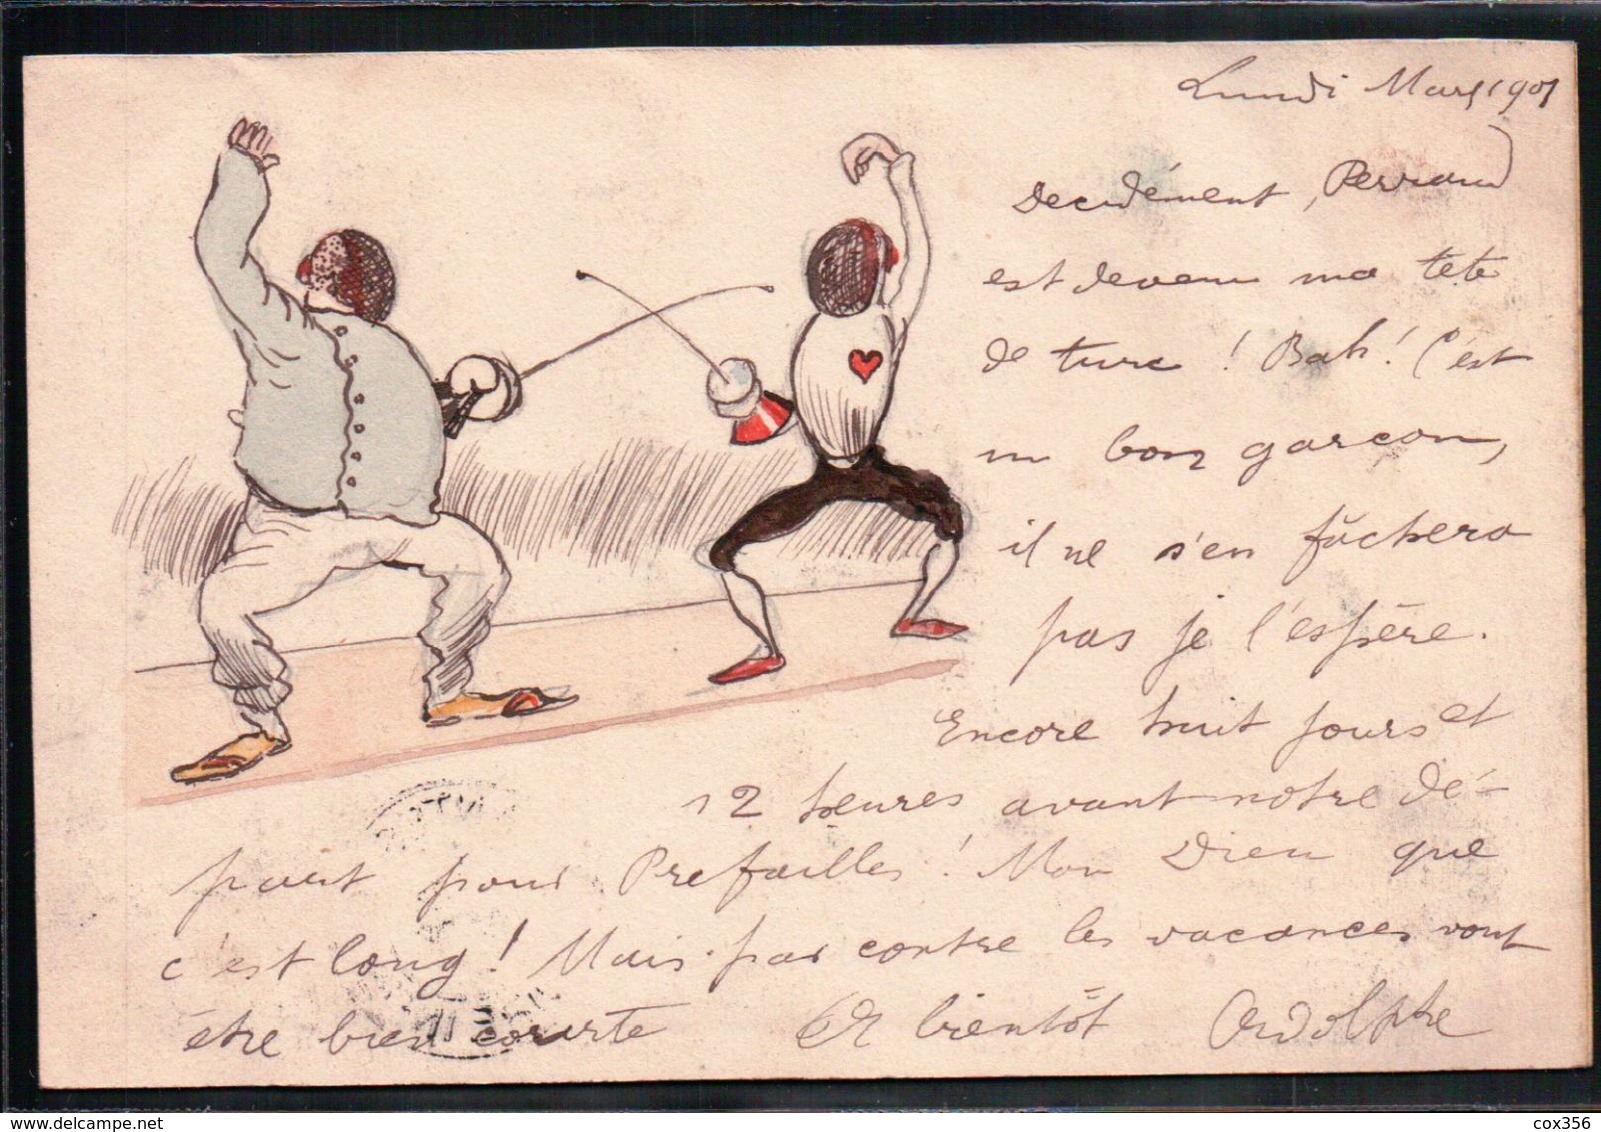 Lundi Mars 1901
Decidément, Perraud
est devenu ma tete
de turc ! Bah ! C'est
un bon garçon,
il ne s'en fâchera
pas je l'espère.
Encore huit jours et
12 heures avant notre dé-
part pour Prefailles ! Mon Dieu que
c'est long ! Mais par contre les vacances vont
être bien courte Et bientôt Adolphe
www.delcampe.net
cox356